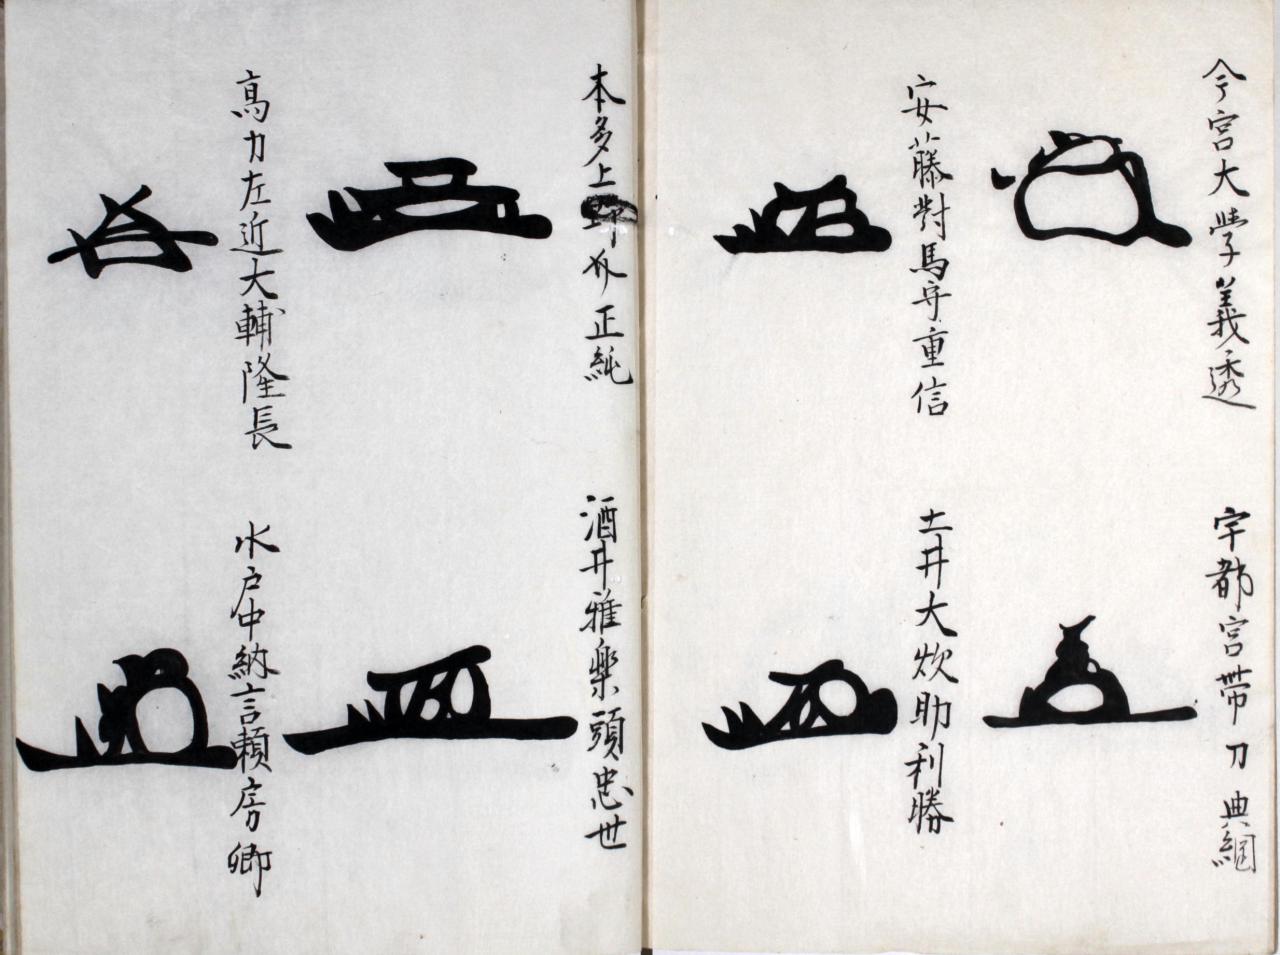 今宮大学義透
宇都宮帯刀典綱
安藤對馬守重信
土井大炊助利勝
本多上野介正純
酒井雅樂頭忠世
高力左近大輔隆長
水戸中納言頼房卿